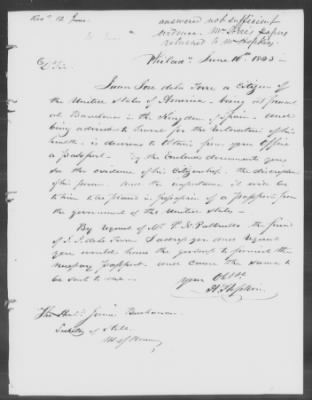 Recd 12 June
answered not sufficient
evidence. Mr Torre's papers
returned to Mr Hopkins
Philada June 10th 1845
Sir
Juan Jose de la Torre a Citizen of
the United States of America, being at present
at Barcelona in the Kingdom of Spain, and
being advised to travel for the restoration of his
health, is desirous to obtain from your Office
a Passport. By the Enclosed documents you
see the evidence of his Citizenship, the description
of his person, and the importance it will be
to him to be placed in possession of a passport from
the government of the United States—
By request of Mr. the friend
of J. J. de la Torre I address you and request
you would have the goodness to furnish the
necessary passport, and cause the same to
be sent to me—
your Obt St.
H. Hopkins
The Honbl. James Buchanan
Secretary of State
Washington